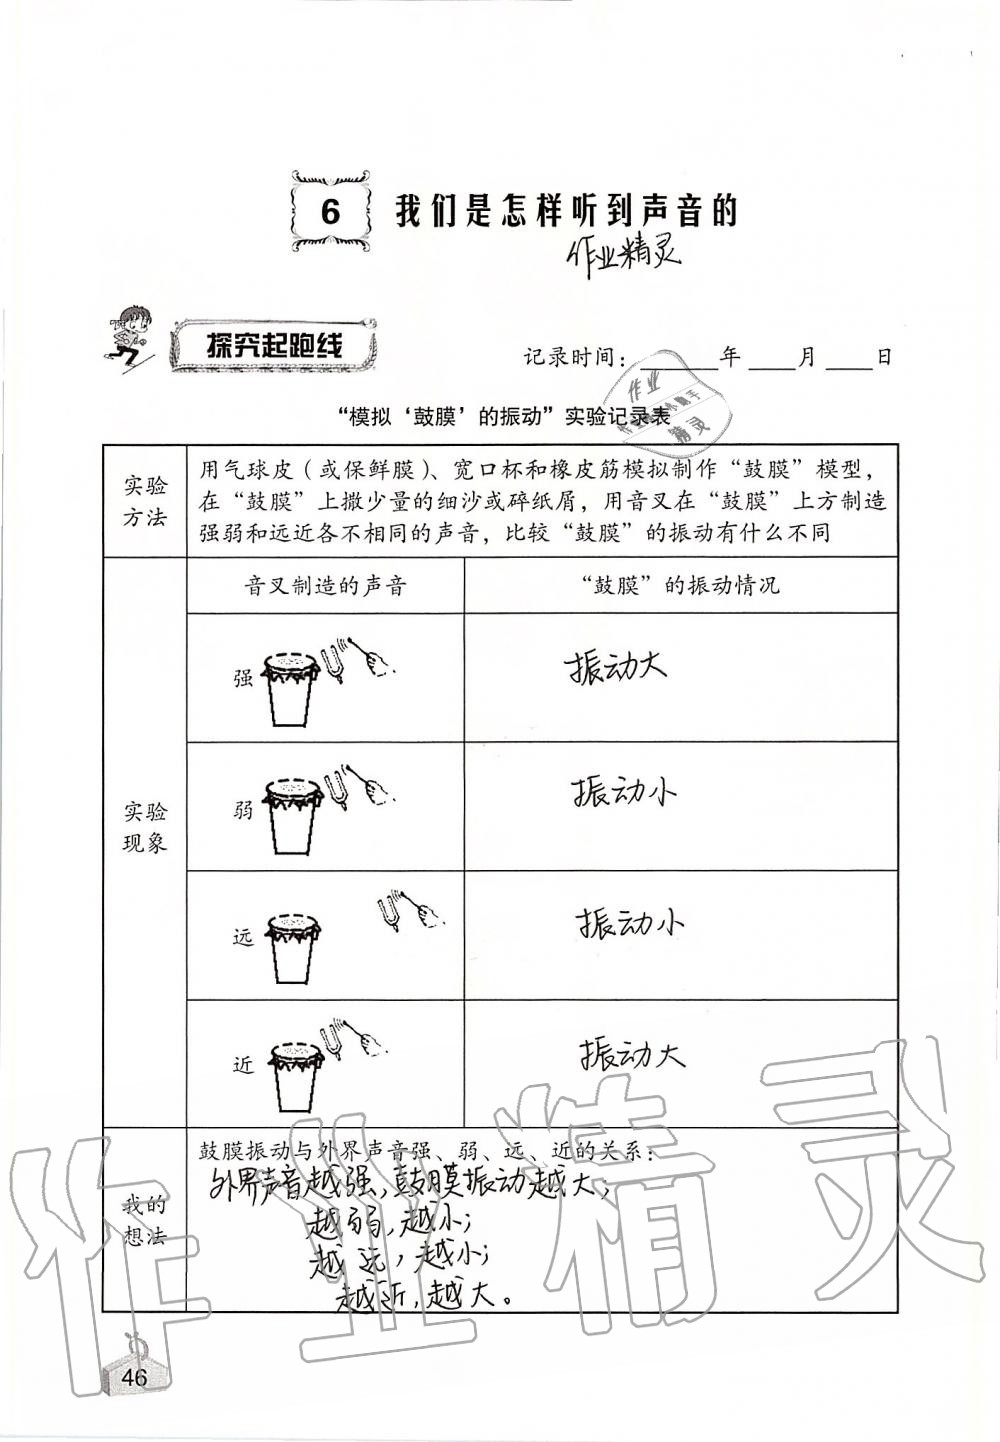 6
我们是怎样听到声音的
作业精灵
探究起跑线
记录时间：______年____月____日
“模拟‘鼓膜’的振动”实验记录表
实验
方法
用气球皮（或保鲜膜）、宽口杯和橡皮筋模拟制作“鼓膜”模型，
在“鼓膜”上撒少量的细沙或碎纸屑，用音叉在“鼓膜”上方制造
强弱和远近各不相同的声音，比较“鼓膜”的振动有什么不同
音叉制造的声音
“鼓膜”的振动情况
实验
现象
强
振动大
弱
振动小
远
振动小
近
振动大
我的
想法
鼓膜振动与外界声音强、弱、远、近的关系：
外界声音越强，鼓膜振动越大；
越弱，越小；
越远，越小；
越近，越大。
46
作业
精灵
作业精灵